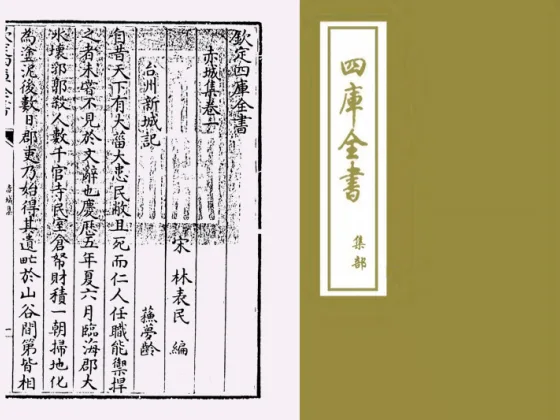 四庫全書
集部
欽定四庫全書
赤城集卷一
宋 林表民 編
台州新城記 蘓夢齡
自昔天下有大菑大患民敝且死而仁人任職能禦捍
之者未嘗不見於文辭也慶厯五年夏六月臨海郡大
水壞郛郭殺人數千官寺民室倉帑財積一朝掃地化
為塗泥後數日郡吏乃始得其遺甿於山谷間第皆相
赤城集